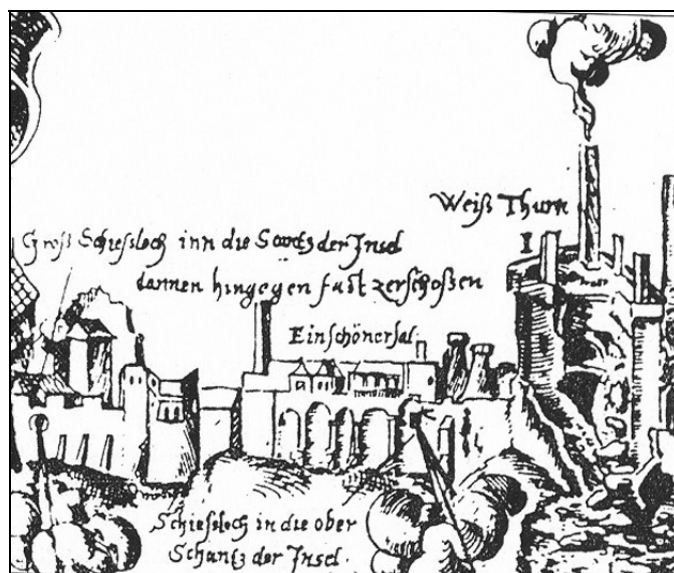 Weiß Thurn
I
Groß Schiessloch inn die Schantz der Insel
dannen hingegen fast zerschoßen
Ein schöner sal
Schiessloch in die ober
Schantz der Insel.